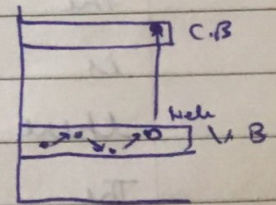 C.B
Hole
V. B